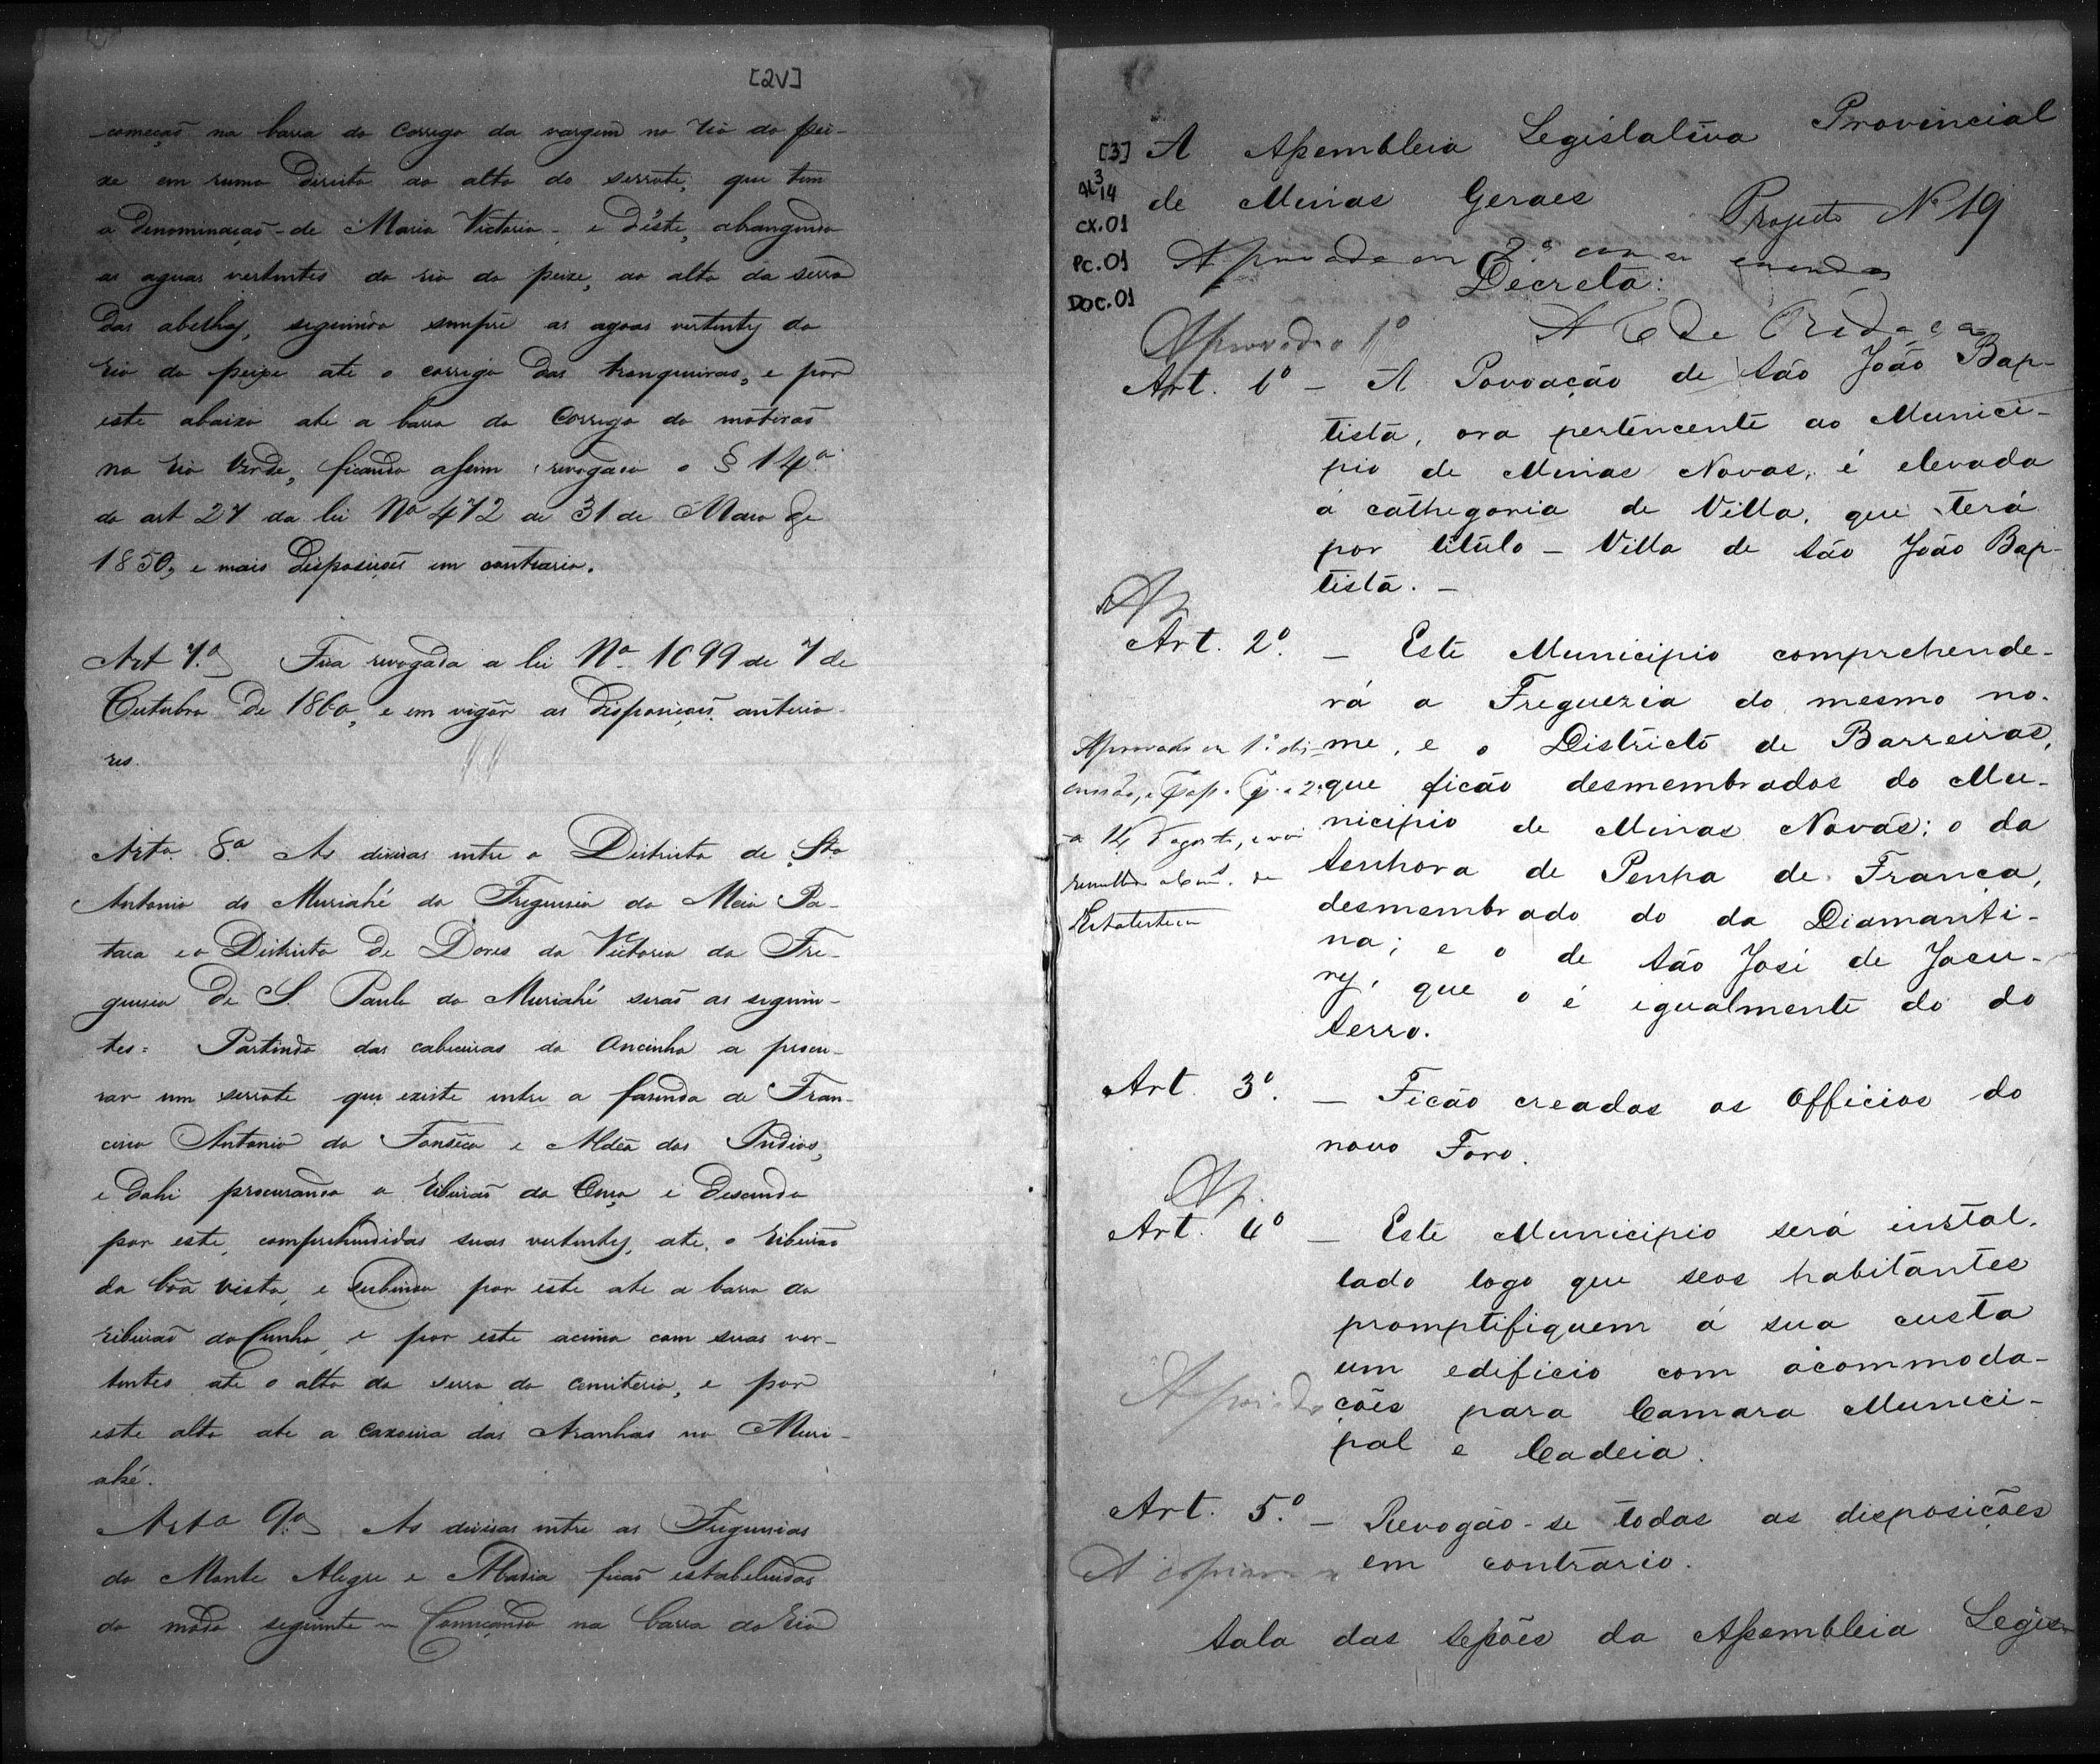 [2V]
começão na barra do Corrego da vargem no rio do pei-
xe em rumo direito ao alto do serrote, que tem
a denominação - de Maria Victoria - e d'este, abrangendo
as aguas vertentes do rio do peixe, ao alto da serra
das abelhas, seguindo sempre as agoas vertentes do
rio do peixe ate o corrego das tranqueiras, e por
este abaixo até a barra do Corrego do motirão
no rio Verde, ficando assim revogado o § 14º
do art 27 da lei Nº 472 de 31 de Maio de
1850, e mais disposições em contrario.
Art 7.º Fica revogada a lei Nº 1099 de 7 de
Outubro de 1860, e em vigôr as disposições anterio-
res.
Arto. 8.º As divisas entre o Districto de Sto
Antonio do Muriahé da Freguesia do Meia Pa-
taca e o Districto de Dores da Victoria da Fre-
guesia de S. Paulo do Muriahé serão as seguin-
tes = Partindo das cabeceiras do Ancinho a procu-
rar um serrote que existe entre a fazenda de Fran-
cisco Antonio da Fonsêca e Aldêa dos Indios,
e dahi procurando o ribeirão da Onça e descendo
por este, comprehendidas suas vertentes, ate o ribeirão
da bôa vista, e subindo por este ate a barra do
ribeirão do Cunha, e por este acima com suas ver-
tentes ate o alto da serra do cemiterio, e por
este alto ate a caxoeira das Aranhas no Muri-
ahé.
Arto 9.º As divisas entre as Freguesias
do Monte Alegre e Abadia ficão estabelecidas
do modo seguinte - Começando na barra do rio
[3] A Assembleia Legislativa Provincial
AL 3 14
de Minas Geraes
Projecto Nº 19
CX.01
PC.01 Aprovado em 2.ª com a emenda
Decreta:
DOC.01
Aprovado 1º A C de Redação
Art. 1º - A Povoação de São João Bap-
tista, ora pertencente ao Munici-
pio de Minas Novas, é elevada
á cathegoria de Villa, que terá
por titulo - Villa de São João Bap-
tista. -
Ap
Art. 2º. - Este Municipio comprehende-
rá a Freguezia do mesmo no-
me, e o Districto de Barreiras,
que ficão desmembrados do Mu-
nicipio de Minas Novas; o da
Senhora de Penha de França,
desmembrado do da Diamanti-
na; e o de São José de Jacu-
ry, que o é igualmente do do
Serro.
Aprovado em 1.ª dis-
cussão,
a 14 d'agosto, e vai
remettido a Com. de
Estatistica
Art. 3º. - Ficão creados os Officios do
novo Foro.
Ap.
Art. 4º - Este Municipio será instal-
lado logo que seos habitantes
promptifiquem á sua custa
um edificio com acommoda-
ções para Camara Munici-
pal e Cadeia.
Apoiado
Art. 5º. - Revogão-se todas as disposições
em contrario.
A
Sala das Sessões da Assembleia Legis-